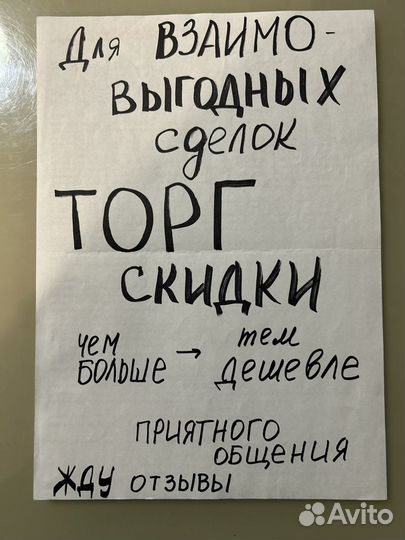 Для ВЗАИМО-
ВЫГОДНЫХ
сделок
ТОРГ
СКИДКИ
чем тем
БОЛЬШЕ → дешевле
ПРИЯТНОГО
ОБЩЕНИЯ
ЖДУ ОТЗЫВЫ
Avito